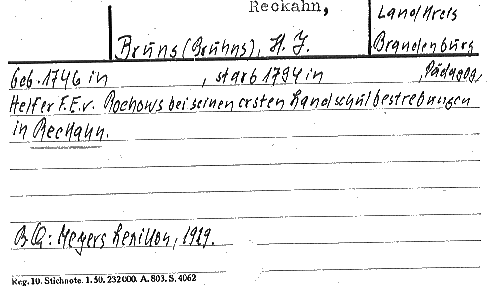 Reckahn,
Landkreis
Bruns (Bruhns), H. J.
Brandenburg
Geb. 1746 in , starb 1794 in , Pädagog,
Helfer F. E. v. Rochows bei seinen ersten Landschulbestrebungen
in Reckahn.
BQ: Meyers Lexikon, 1929.
Reg. 10. Stichnote. 1. 50. 232000. A. 803. S. 4062